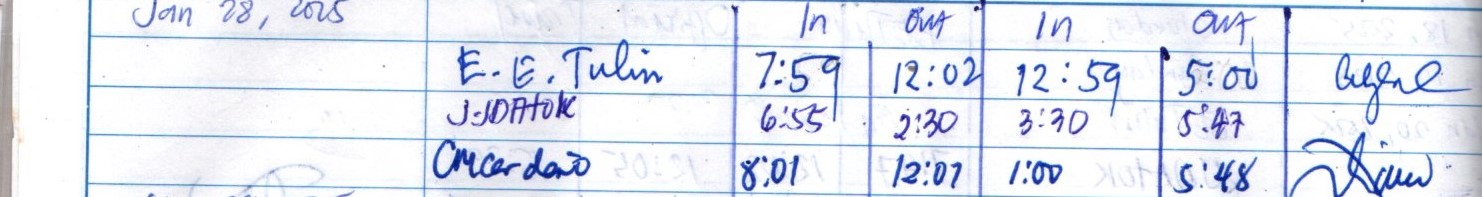 Jan 28, 2025 In Out In Out
E. E. Tulin 7:59 12:02 12:59 5:00
J.JDAtok 6:55 2:30 3:30 5:47
Cmcerdano 8:01 12:07 1:00 5:48